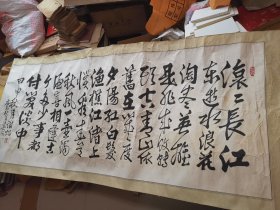 滚々长江
东逝水浪花
淘尽英雄
是非成败转
头空青山依
旧在几度
夕阳红白发
渔樵江渚上
惯看秋月春
风一壶浊
酒喜相逢古
今多少事都
付笑谈中